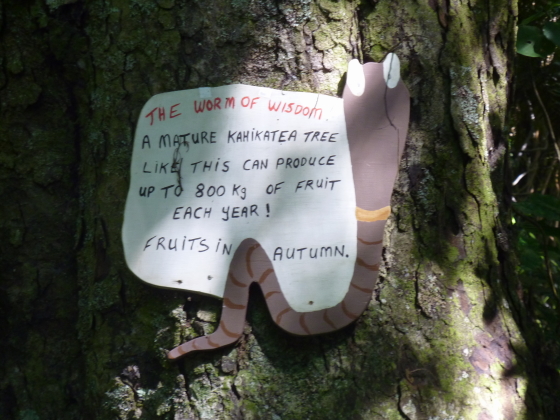 THE WORM OF WISDOM.
A MATURE KAHIKATEA TREE
LIKE THIS CAN PRODUCE
UP TO 800 Kg OF FRUIT
EACH YEAR!
FRUITS iN AUTUMN.